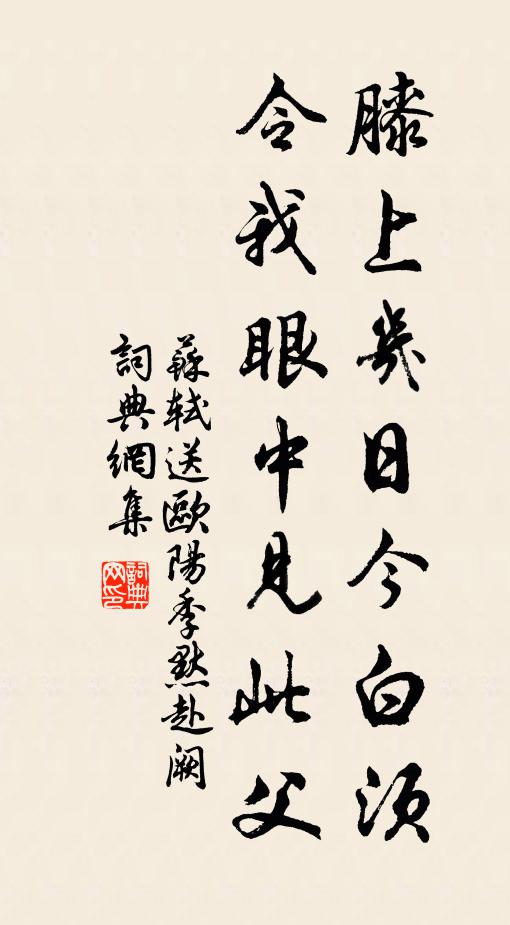 膝上幾日今白須
令我眼中見此父
蘇軾送歐陽季默赴闕
詞典網集
詞典網印